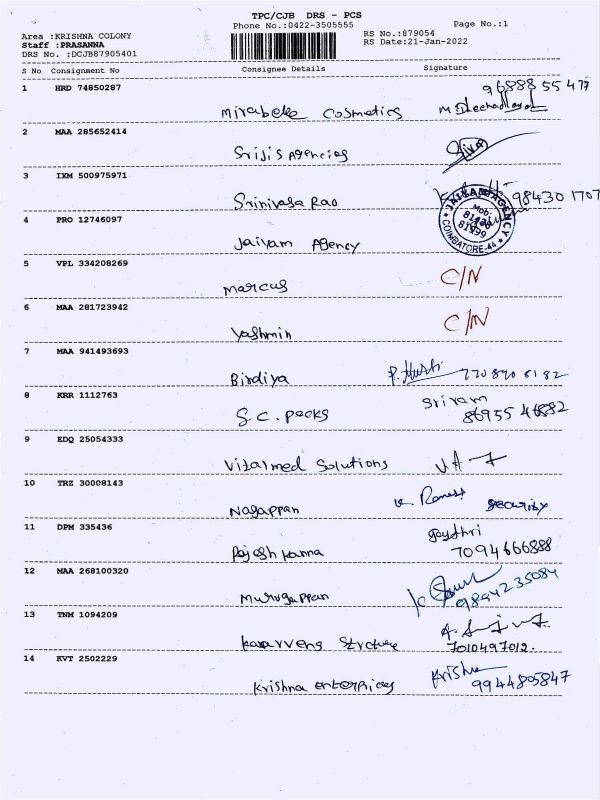 TPC/CJB DRS - PCS
Phone No.:0422-3505555
Page No.:1
Area :KRISHNA COLONY
Staff :PRASANNA
DRS No. :DCJB87905401
RS No.:879054
RS Date:21-Jan-2022
S No Consignment No Consignee Details Signature
1 HRD 74850287
Cosmetics
2 MAA 285652414
Srijis Agencies
3 IXM 500975971
Srinivasa Rao
4 PRO 12746097
Jaivam Agency
COIMBATORE-44
5 VPL 334208269
marcus C/N
6 MAA 281723942
Yashmin C/N
7 MAA 941493693
Birdiya
8 KRR 1112763
S.C. packs Sriram
9 EDQ 25054333
Vitalmed Solutions
10 TRZ 30008143
Nagappan security
11 DPM 335436
Gaythri
7094666888
12 MAA 268100320
Murugappan 9894235084
13 TNM 1094209
7010497012.
14 KVT 2502229
Krishna Enterprices Krishna
9944805847